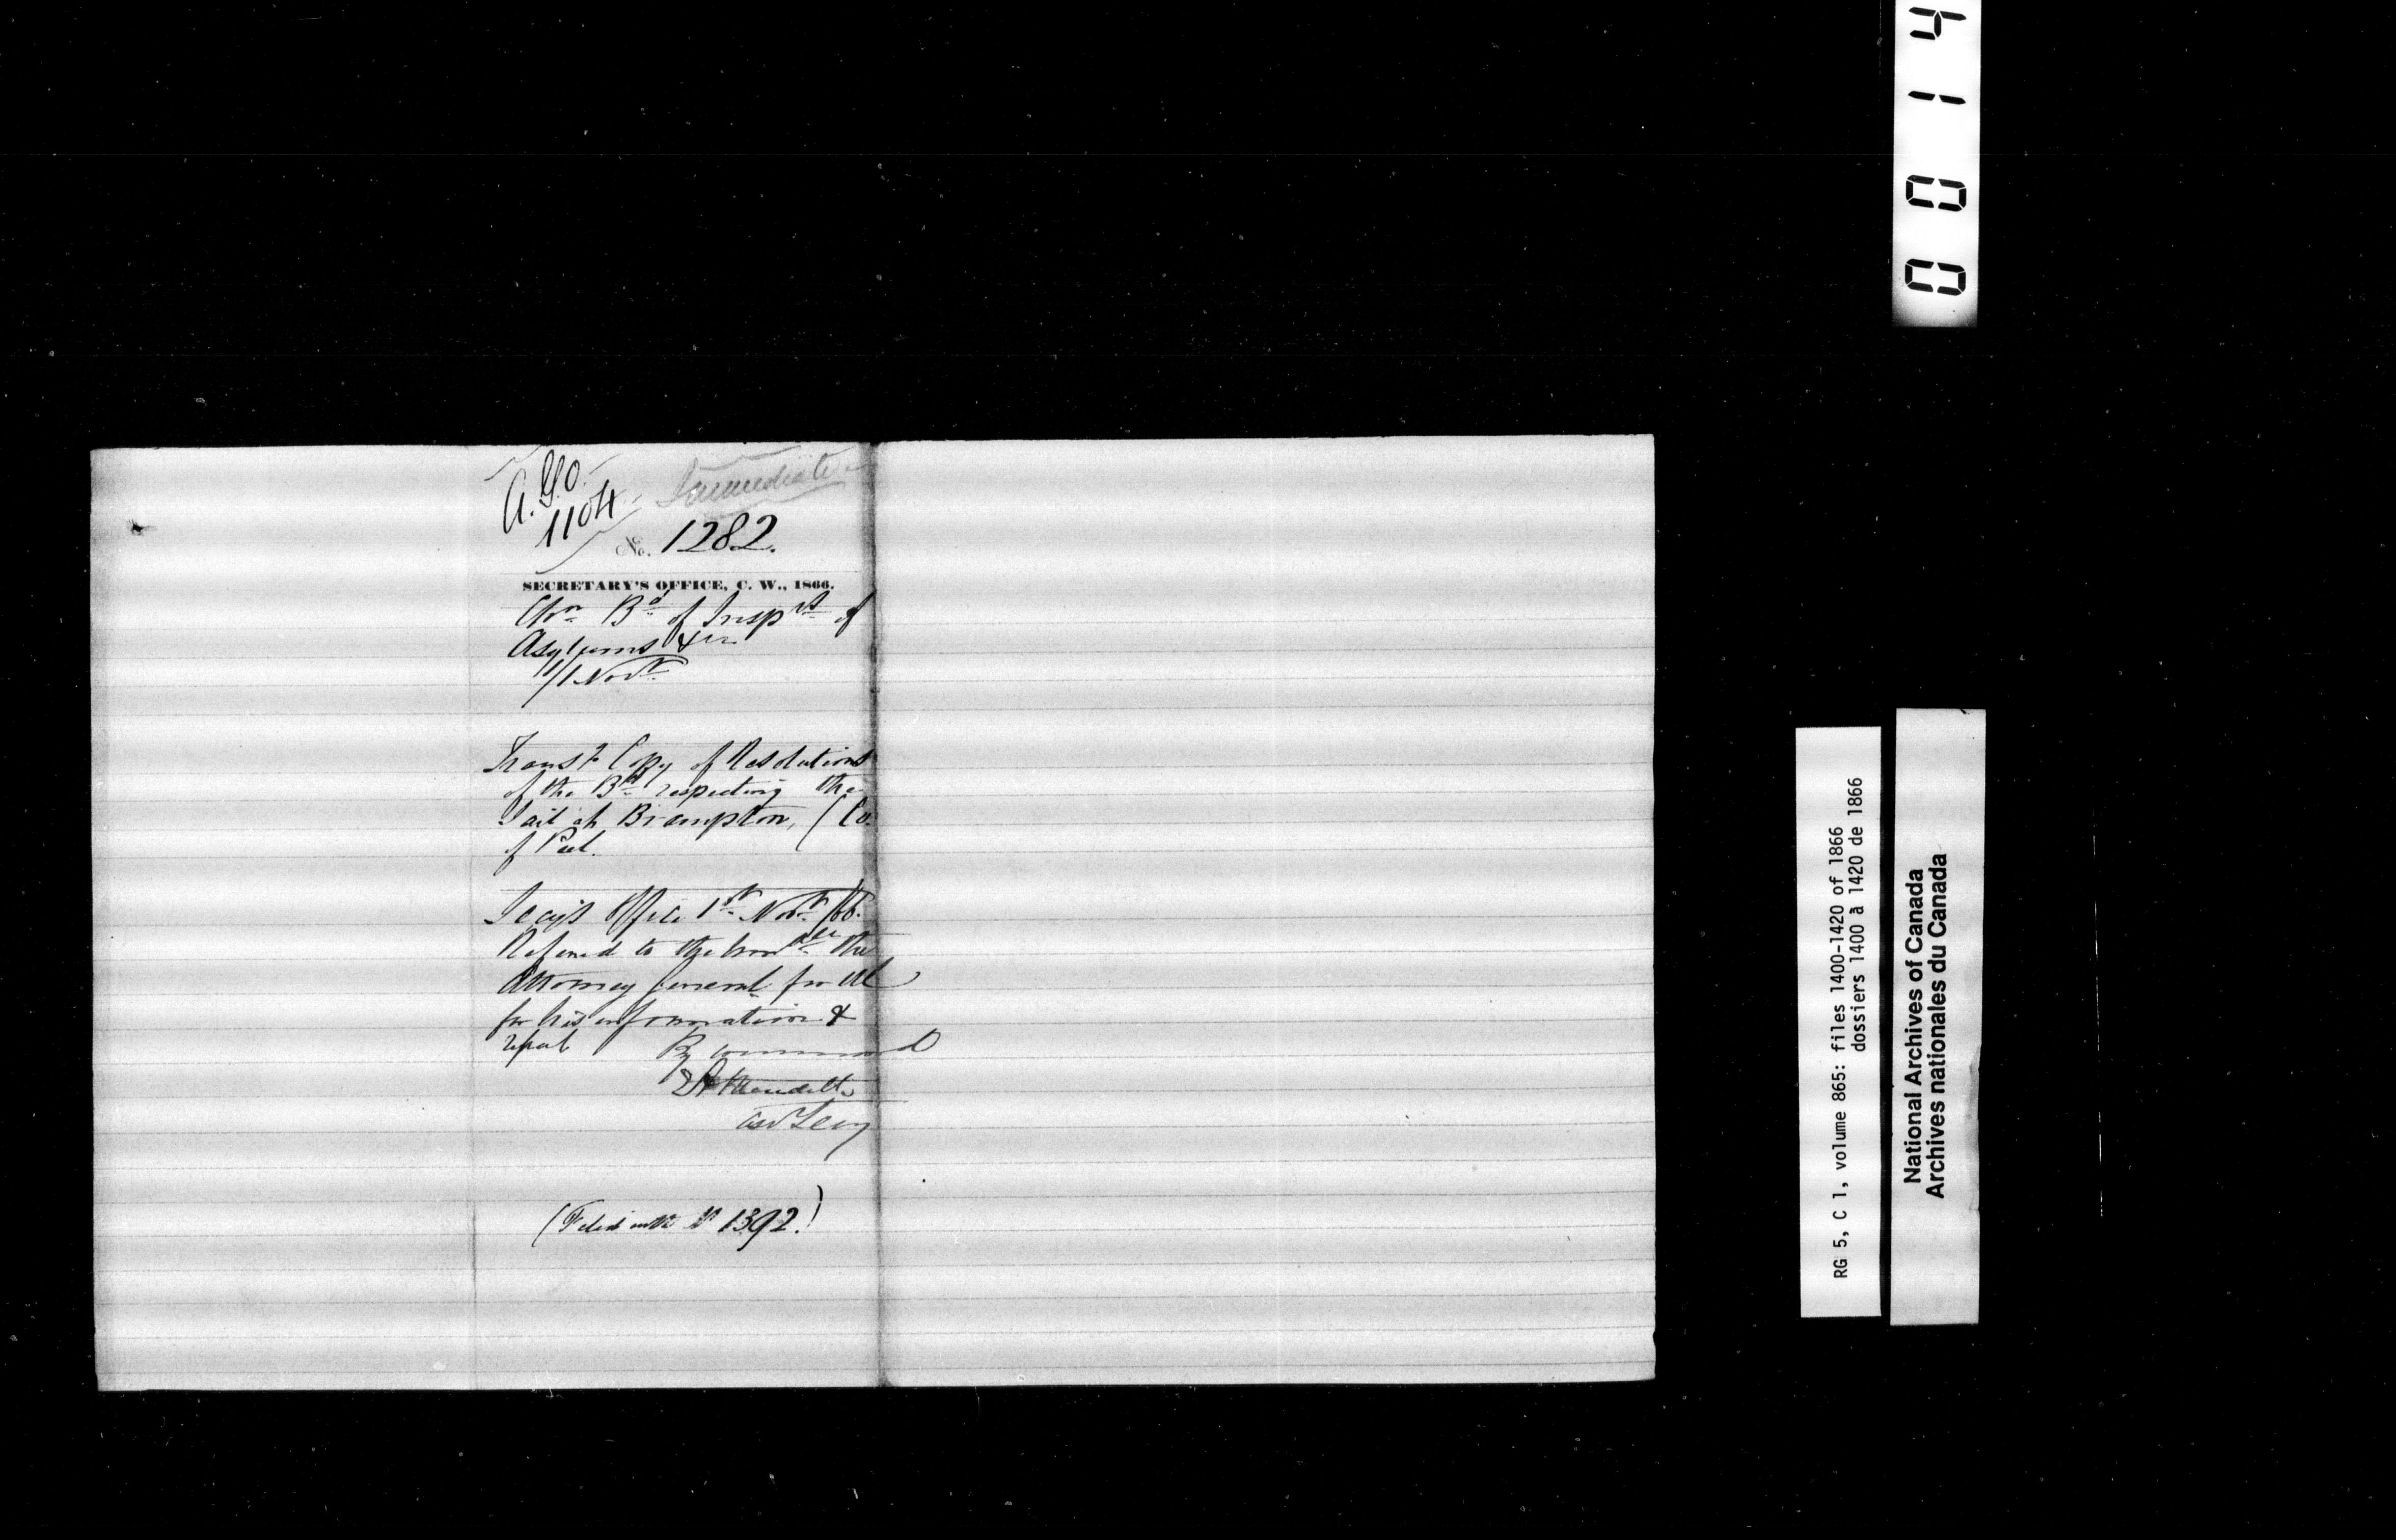 A.G.O.
1104
Immediate
No. 1282.
SECRETARY'S OFFICE, C. W., 1866.
Chn Bd of Insprs of
Asylums &c
1/1 Novr
Transt Copy of Resolutions
of the Bd respecting the
Jail at Brampton, (Co.
of Peel.
Secy's Office 1st Novr /66.
Referred to the honble the
Attorney General for UC
for his information &
report
By command
E A Meredith
Asst Secy
(Filed with No 1392.)
0014
RG 5, C 1, volume 865: files 1400-1420 of 1866
dossiers 1400 à 1420 de 1866
National Archives of Canada
Archives nationales du Canada